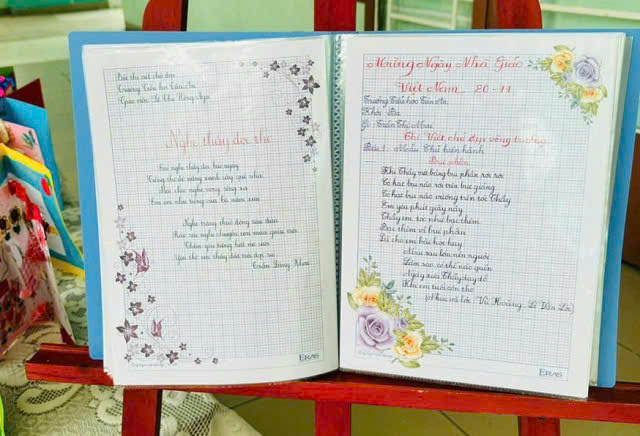 Bài thi viết chữ đẹp
Trường Tiểu học
Giáo viên: Lê Thị Hồng Nga
Nghe thầy đọc thơ
Em nghe thầy đọc bao ngày
Tiếng thơ đỏ nắng xanh cây quanh nhà
Mái chèo nghe vọng sông xa
Êm êm như tiếng của bà năm xưa
Nghe trăng thuở động tàu dừa
Rào rào nghe chuyển cơn mưa giữa trời
Thêm yêu tiếng hát mẹ cười
Yêu thơ em thấy đất trời đẹp ra
Trần Đăng Khoa
ERAS
Mừng Ngày Nhà Giáo
Việt Nam 20-11
Trường Tiểu học
Khối: Ba
Gv: Trần Thị Mai
Thi Viết chữ đẹp vòng trường
Bài 1: Mẫu chữ hiện hành
Bụi phấn
Khi Thầy viết bảng bụi phấn rơi rơi
Có hạt bụi nào rơi trên bục giảng
Có hạt bụi nào vương trên tóc Thầy
Em yêu phút giây này
Thầy em, tóc như bạc thêm
Bạc thêm vì bụi phấn
Để cho em bài học hay
Mai sau lớn nên người
Làm sao, có thể nào quên
Ngày xưa Thầy dạy dỗ
Khi em tuổi còn thơ
(Nhạc và lời: Vũ Hoàng - Lê Văn Lộc)
ERAS